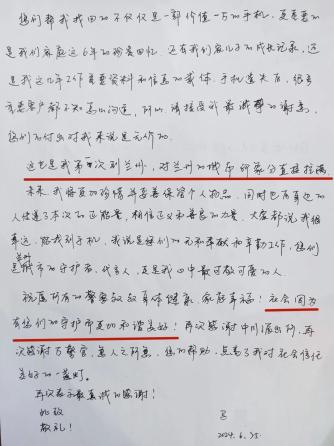 您们帮我找回的不仅仅是一部价值一万的手机，更重要的
是我们家庭这6年的珍贵回忆，还有我们家儿子的成长记录，还
是我这几年工作重要资料和信息的载体。手机遗失后，很多
重要客户都不知怎么沟通，所以，请接受我最诚挚的谢意，
您们的付出对我来说是无价的。
这也是我第一次到兰州，对兰州的城市印象分直接拉满
未来，我将更加珍惜并妥善保管个人物品，同时也向身边的
人传递了本次的正能量，相信正义和善良的力量。大家都说我很
幸运，能找到手机，我说是您们的无私奉献和辛勤工作，您们
是兰州城市的守护者、代言人，更是我心中最可敬可爱的人。
祝愿所有的警察叔叔身体健康，家庭幸福！社会因为
有您们的守护而更加和谐美好！再次感谢中川派出所，再
次感谢万警官，急人之所急，您的帮助，点亮了我对社会信任
美好的一盏灯。
再次表示最真诚的感谢！
此致
敬礼！
2024.6.25.